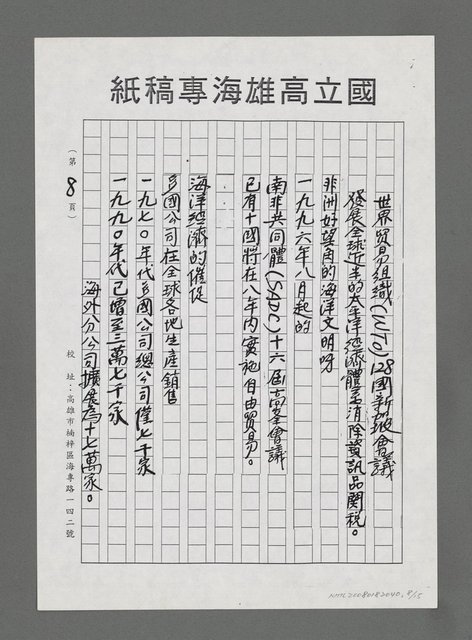 國立高雄海專稿紙
世界貿易組織(WTO)128國新坡會議
發展全球近半的太平洋經濟體系消除資訊品關稅。
非洲好望角的海洋文明呀
一九九六年八月起的
南非共同體(SADC)十六屆高峯會議
已有十國將在八年內實施自由貿易。
海洋經濟的催促
多國公司在全球各地生產銷售
一九七〇年代多國公司總公司僅七千家
一九九〇年代已增至三萬七千家
海外分公司擴展為十七萬家。
(第8頁)
校址:高雄市楠梓區海專路一四二號
NMTL20080182040. 8/15